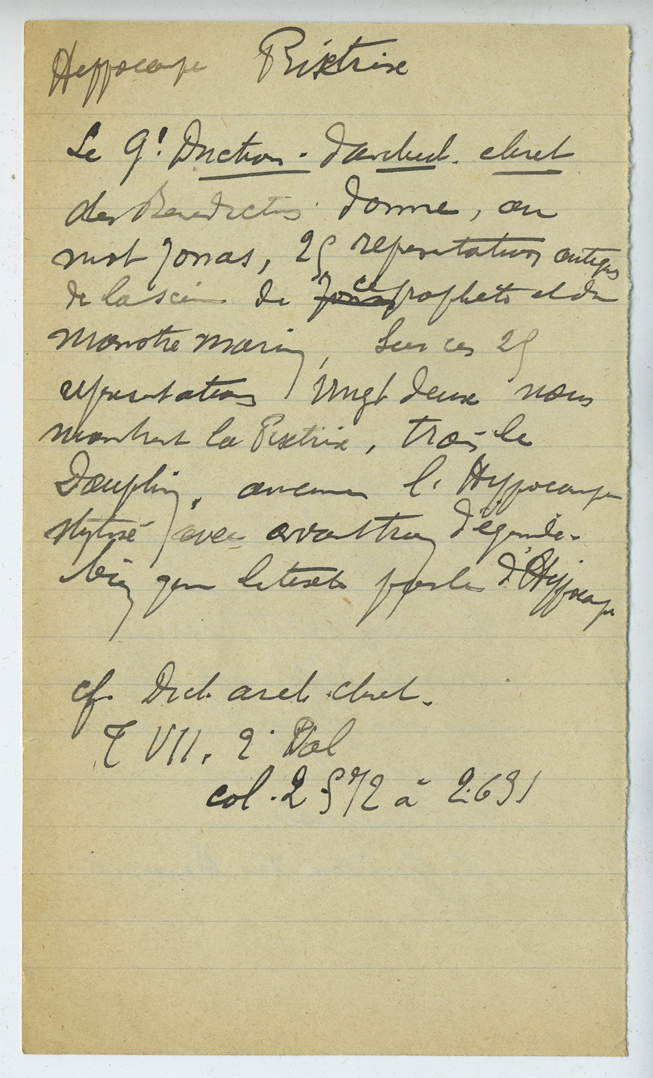 Hyppocampe Pistrix
Le Gd Diction. d'archeol. chret
des Benedictins donne, au
mot Jonas, 25 representations antiques
de la scène de ce prophète et du
monstre marin. Sur ces 25
representations vingt deux nous
montrent la Pistrix, trois le
Dauphin, aucune l'Hyppocampe
stylisé avec avant train d'équidé.
bien que le texte parle d'Hyppocampe
cf. Dict. arch. chret.
T VII. 2e Vol
col. 2572 à 2631